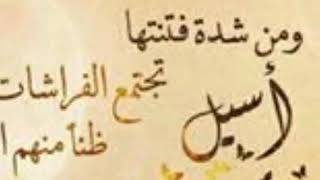 ومن شدة فتنتها
أسيل
تجتمع الفراشات
ظناً منهم ا